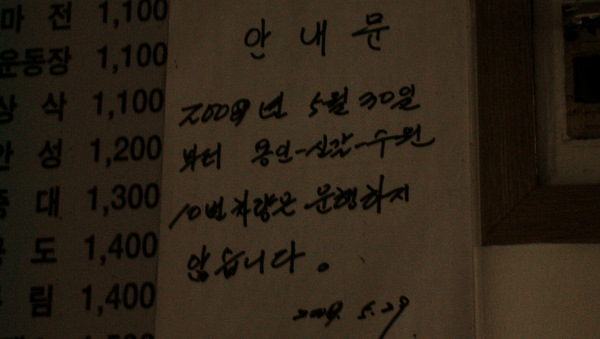 마 전 1,100
운동장 1,100
상 삭 1,100
안 성 1,200
중 대 1,300
1,400
림 1,400
안 내 문
2009년 5월 30일
부터 용인-신갈-수원
10번 차량은 운행하지
않습니다.
2009. 5. 29